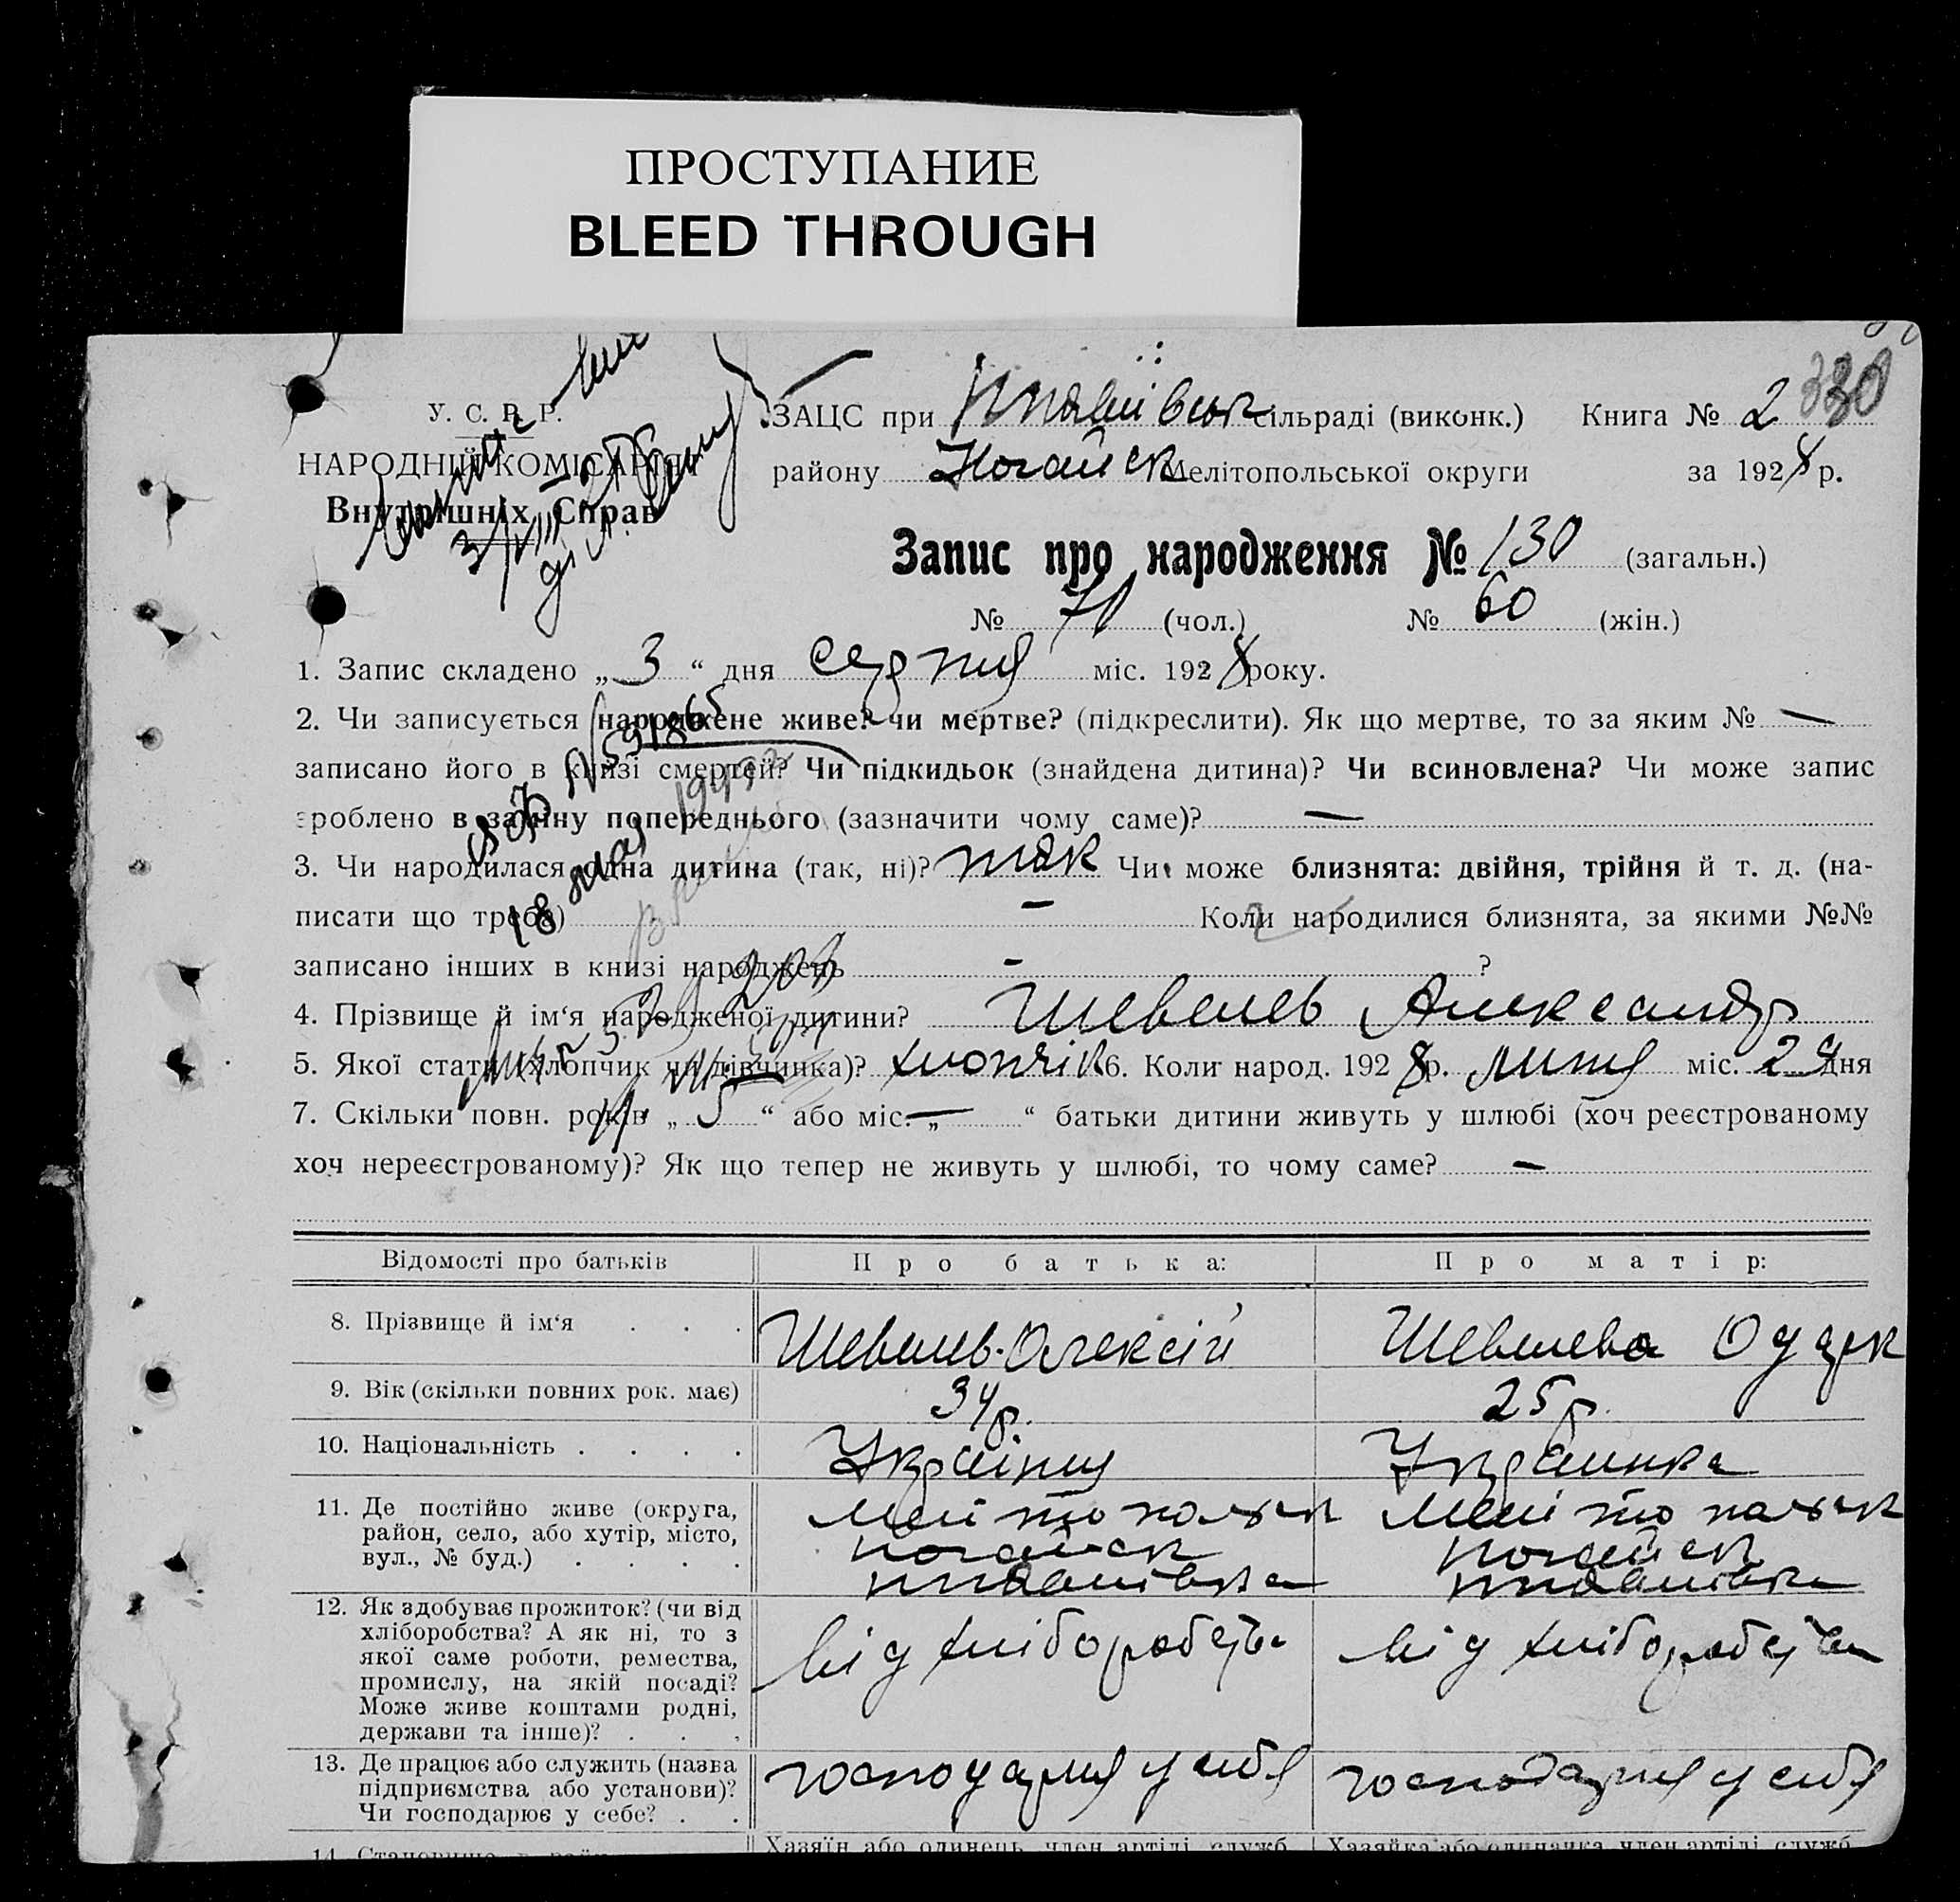 ПРОСТУПАНИЕ
BLEED THROUGH
У. С. Р. Р.
НАРОДНІЙ КОМІСАРІЯТ
Внутрішніх Справ
ЗАЦС при сільраді (виконк.) Книга № 2 330
району Ногайськ Мелітопольської округи за 1928 р.
Запис про народження № 130 (загальн.)
№ 70 (чол.) № 60 (жін.)
1. Запис складено „ 3 “ дня серпня міс. 1928 року.
2. Чи записується народжене живе? чи мертве? (підкреслити). Як що мертве, то за яким № —
записано його в книзі смертей? Чи підкидьок (знайдена дитина)? Чи всиновлена? Чи може запис
зроблено в заміну попереднього (зазначити чому саме)? —
3. Чи народилася одна дитина (так, ні)? так Чи може близнята: двійня, трійня й т. д. (на-
писати що треба) — Коли народилися близнята, за якими №№
записано інших в книзі народжень - ?
4. Прізвище й ім‘я народженої дитини? Шевелев Александр
5. Якої статі (хлопчик чи дівчинка)? хлопчік 6. Коли народ. 1928 р. липня міс. 29 дня
7. Скільки повн. років „ 5 “ або міс. „ — “ батьки дитини живуть у шлюбі (хоч реєстрованому
хоч нереєстрованому)? Як що тепер не живуть у шлюбі, то чому саме? —
Відомості про батьків Про батька: Про матір:
8. Прізвище й ім‘я . . . Шевелев Олексій Шевелева Одарк
9. Вік (скільки повних рок. має) 34 р. 25 р.
10. Національність . . . . Українец Украинка
11. Де постійно живе (округа, Мелітопольск Мелітопольск
район, село, або хутір, місто, ногайск ногайск
вул., № буд.) . . . .
12. Як здобуває прожиток? (чи від
хліборобства? А як ні, то з від хліборобства від хліборобства
якої саме роботи, ремества,
промислу, на якій посаді?
Може живе коштами родні,
держави та інше)? . . .
13. Де працює або служить (назва господарує у себя господарує у себя
підприємства або установи)?
Чи господарює у себе? . .
Хазяїн або одинець, член артілі, служб. Хазяйка або одиначка член артілі, служб.